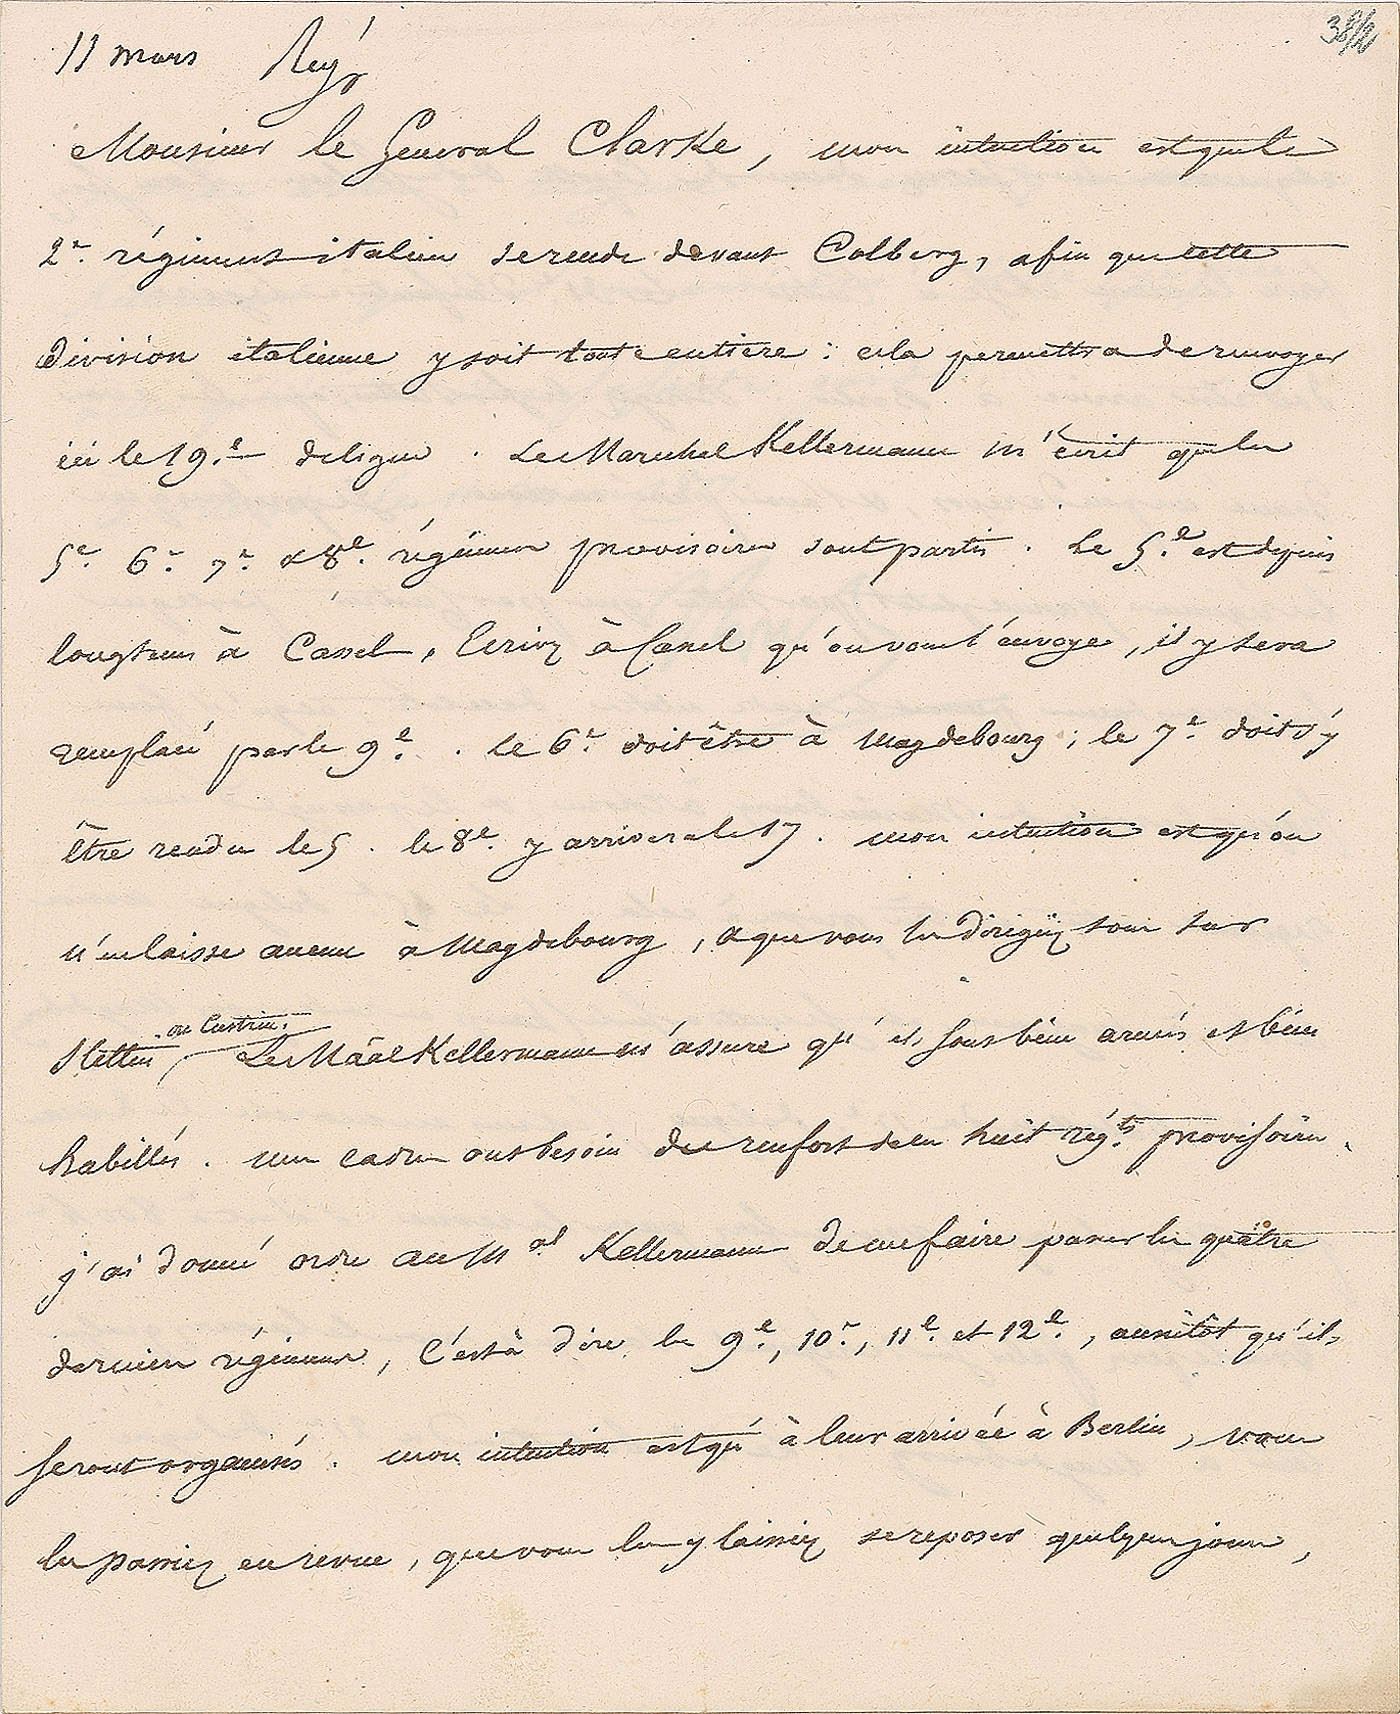 11 mars
Monsieur le Général Clarke, mon intention est que le
2e. régiment italien se rende devant Colberg, afin que cette
division italienne y soit toute entiere : cela permettra de renvoyer
ici le 19.e de ligne. Le Maréchal Kellermann m'écrit que les
5e. 6e. 7e. & 8e. régimens provisoires sont partis. Le 5.e est depuis
longtems à Cassel, Ecrivez à Cassel qu'on vous l'envoye, il y sera
remplacé par le 9e. . le 6e. doit être à Magdebourg ; le 7e. doit s'y
être rendu le 5. le 8e. y arrivera le 17. mon intention est qu'on
n'en laisse aucun à Magdebourg, & que vous les dirigiez tous sur
ou Custrin.
Stettin, Le Mâal Kellermann m'assure qu'ils sont bien armés et bien
habillés. mes cadres ont besoin du renfort de ces huit régts. provisoires.
j'ai donné ordre au Mal Kellermann de me faire passer les quatre
derniers régimens, c'est à dire les 9e., 10e., 11e. et 12e., aussitôt qu'ils
seront organisés. mon intention est qu'à leur arrivée à Berlin, vous
les passiez en revue, que vous les y laissiez se reposer quelques jours,